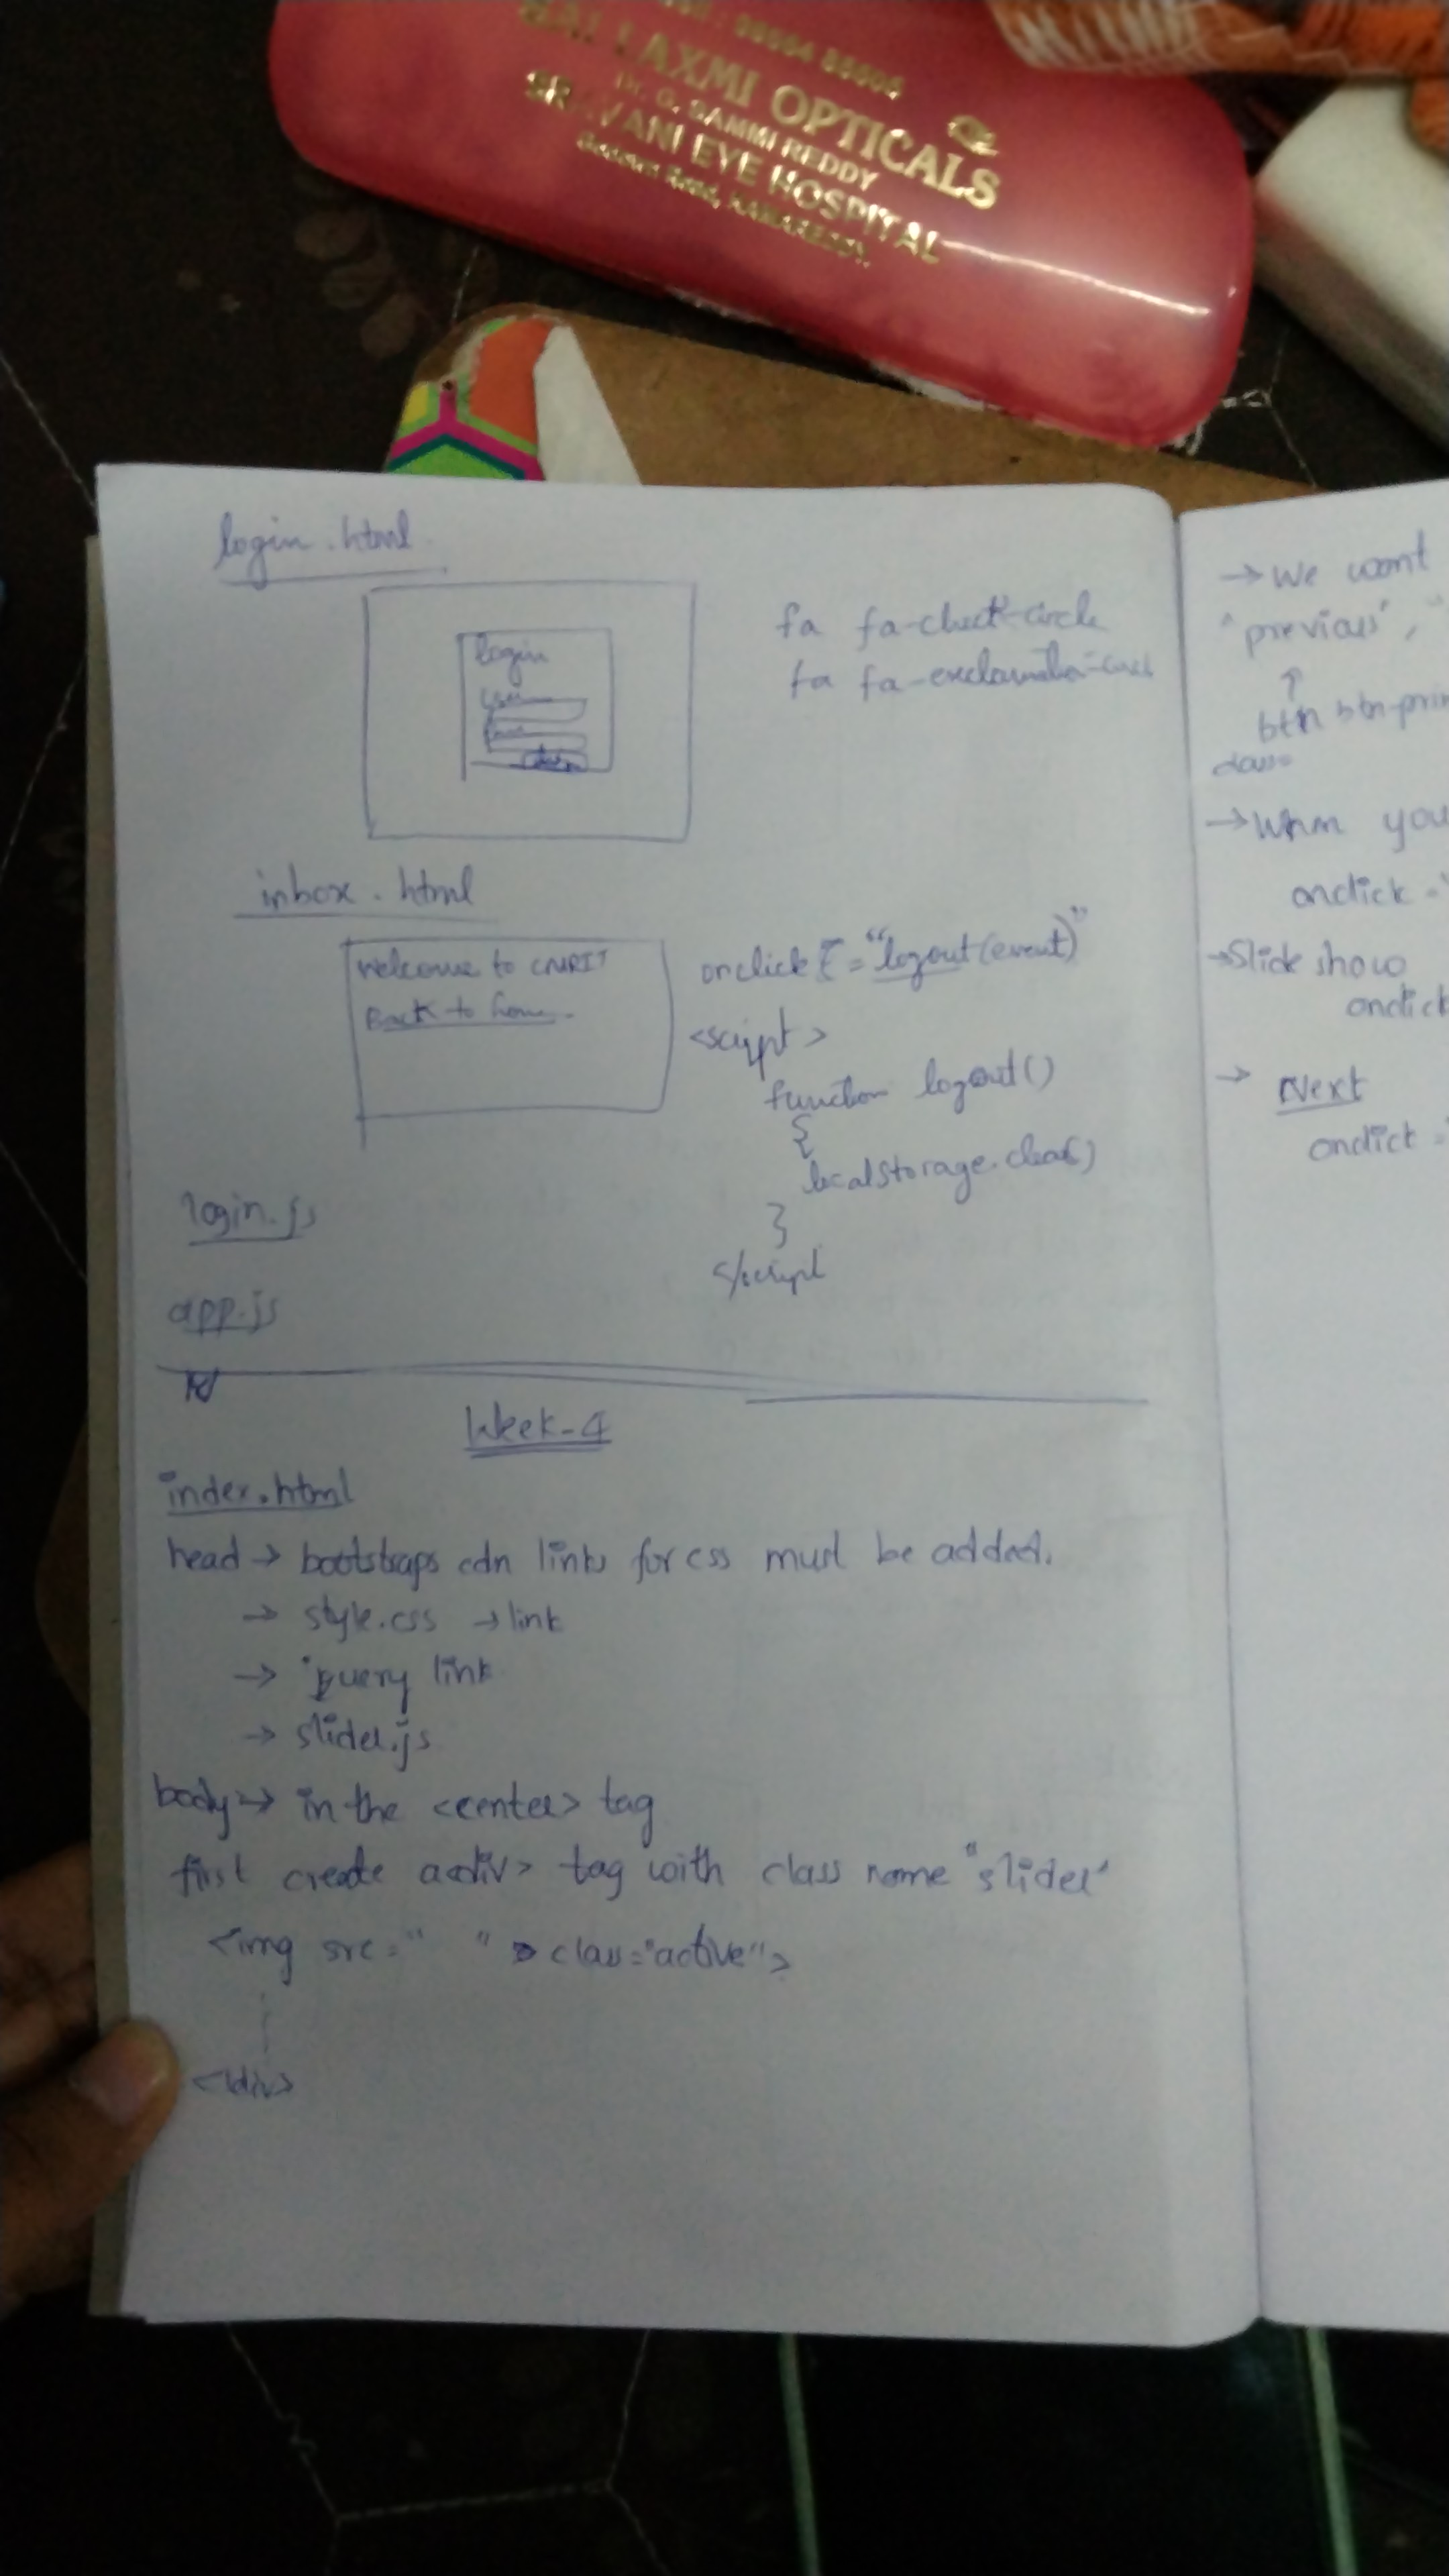 98604 85605
SAI LAXMI OPTICALS
Dr. G. SAMMI REDDY
SRAVANI EYE HOSPITAL
Road, KAMAREDDY.
login.html
login
fa fa-check-circle
fa fa-exclamation-circle
inbox.html
Welcome to CMRIT
Back to home.
onclick = "logout(event)"
<script>
function logout()
{
localstorage.clear()
}
</script
login.js
app.js
Week-4
index.html
head → bootstraps cdn links for css must be added.
→ style.css → link
→ jquery link
→ slider.js
body → in the <center> tag
first create a <div> tag with class name "slider"
<img src=" " class="active">
</div>
→ We want
"previous", "
↑
btn btn-prim
class
→ When you
onclick = "
→ Slide show
onclick
→ Next
onclick = "